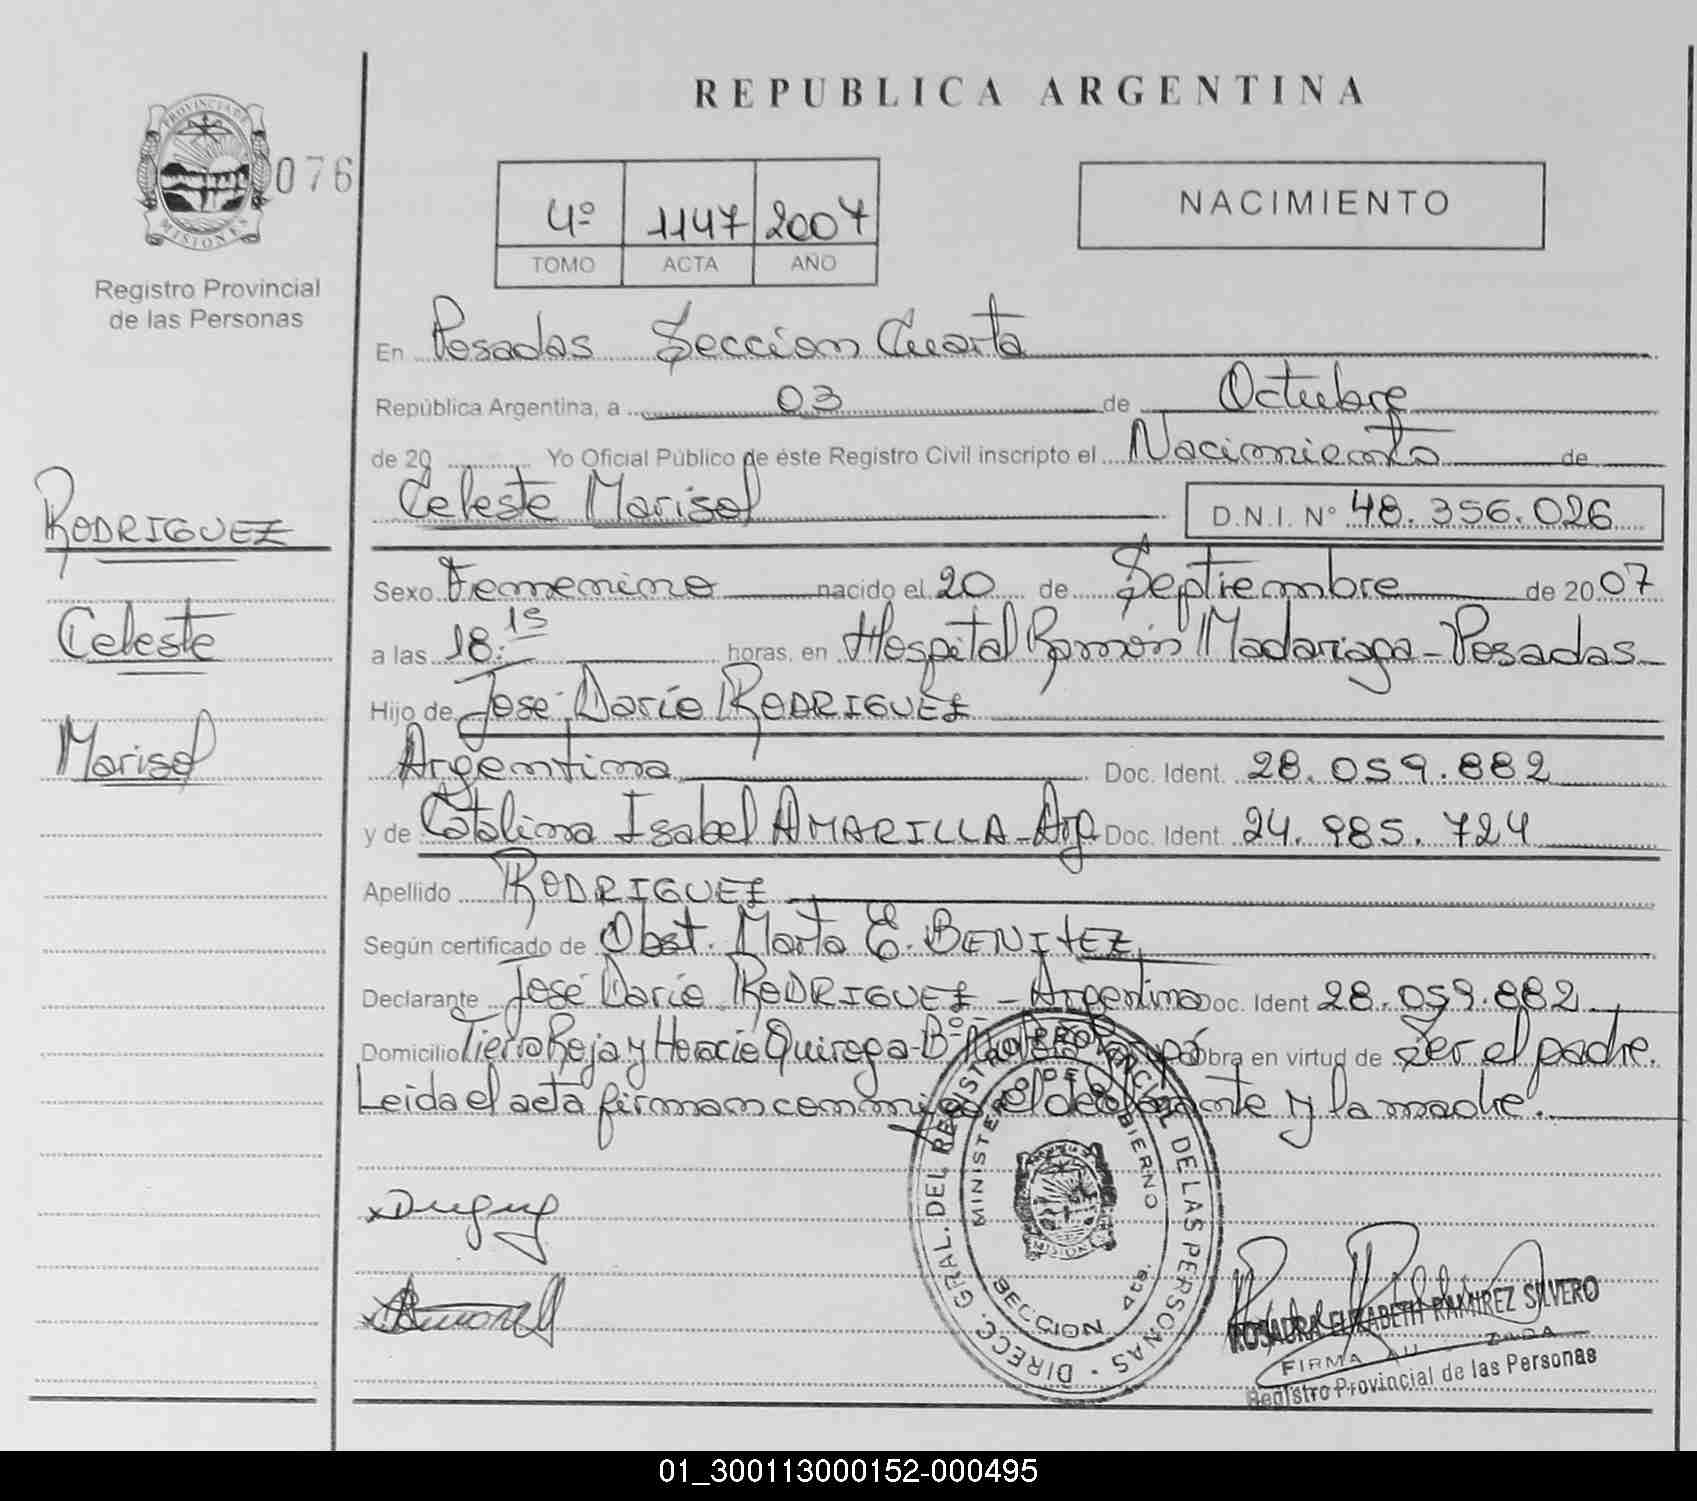 REPUBLICA ARGENTINA
PROVINCIA DE
MISIONES
076
Registro Provincial
de las Personas
4º 1147 2007
TOMO ACTA AÑO
NACIMIENTO
En Posadas Sección Cuarta
República Argentina, a 03 de Octubre
de 20 Yo Oficial Público de éste Registro Civil inscripto el Nacimiento de
Celeste Marisol D.N.I. N° 48.356.026
RODRIGUEZ
Celeste
Marisol
Sexo Femenino nacido el 20 de Septiembre de 2007
a las 18:15 horas, en Hospital Ramón Madariaga - Posadas
Hijo de José Darío RODRIGUEZ
Argentina Doc. Ident. 28.059.882
y de Catalina Isabel AMARILLA - Arg. Doc. Ident. 24.985.724
Apellido RODRIGUEZ
Según certificado de Obst. Marta E. BENITEZ
Declarante José Darío RODRIGUEZ - Argentina Doc. Ident 28.059.882
Domicilio Tierra Roja y Horacio Quiroga - Bº obra en virtud de ser el padre.
Leida el acta firman conmigo el declarante y la madre.
DIRECC. GRAL. DEL REGISTRO PROVINCIAL DE LAS PERSONAS
MINISTERIO DE GOBIERNO
MISIONES
SECCION 4ta.
ROSAURA ELIZABETH RAMIREZ SILVERO
FIRMA AUTORIZADA
Registro Provincial de las Personas
01_300113000152-000495